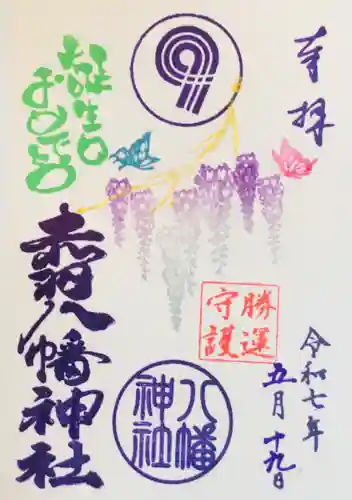 奉拝
誕生日
おめでとう
赤羽八幡神社
勝運
守護
八幡
神社
令和七年
五月十九日